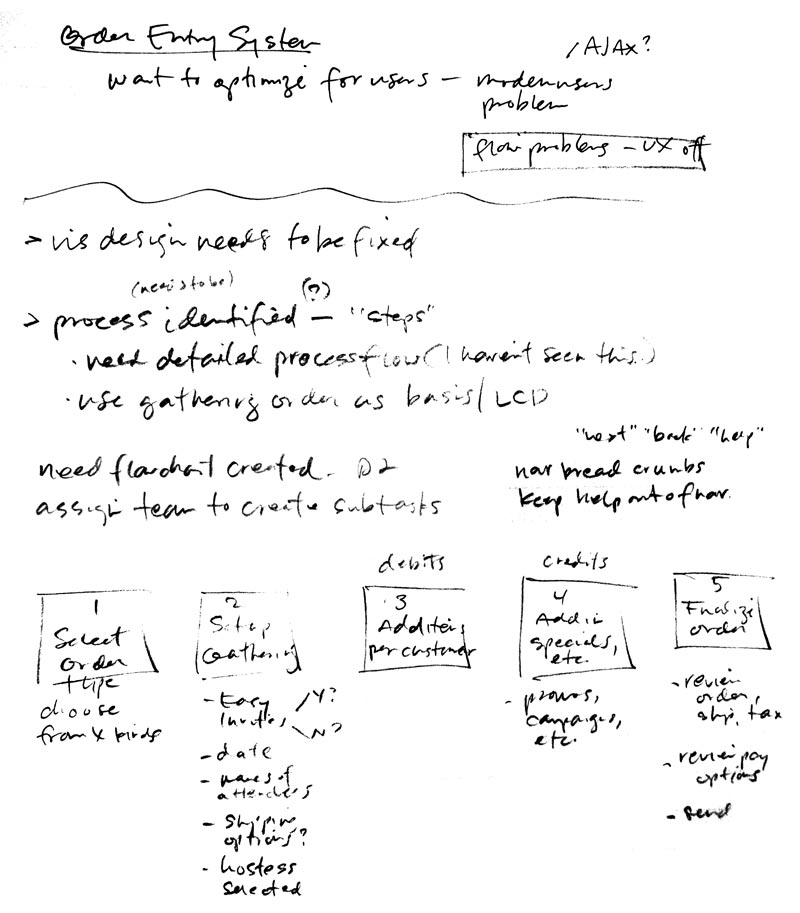 Order Entry System
/AJAX?
want to optimize for users – modern users
problem
flow problems – UX off
> vis design needs to be fixed
(needs to be) (?)
> process identified – "steps"
· need detailed process flow (I haven't seen this.)
· use gathering order as basis/LCD
"next" "back" "help"
need flowchart created.
nav bread crumbs
assign team to create subtasks
keep help out of nav.
debits
credits
1
Select
Order
type
choose
from X kinds
2
Setup
Gathering
- Easy /Y?
Invites \N?
- date
- names of
attendees
- shiping
options?
- hostess
selected
3
Add items
per customer
4
Add in
specials,
etc.
- promos,
campaigns,
etc.
5
Finalize
order
- review
order,
ship, tax
- review pay
options
- send